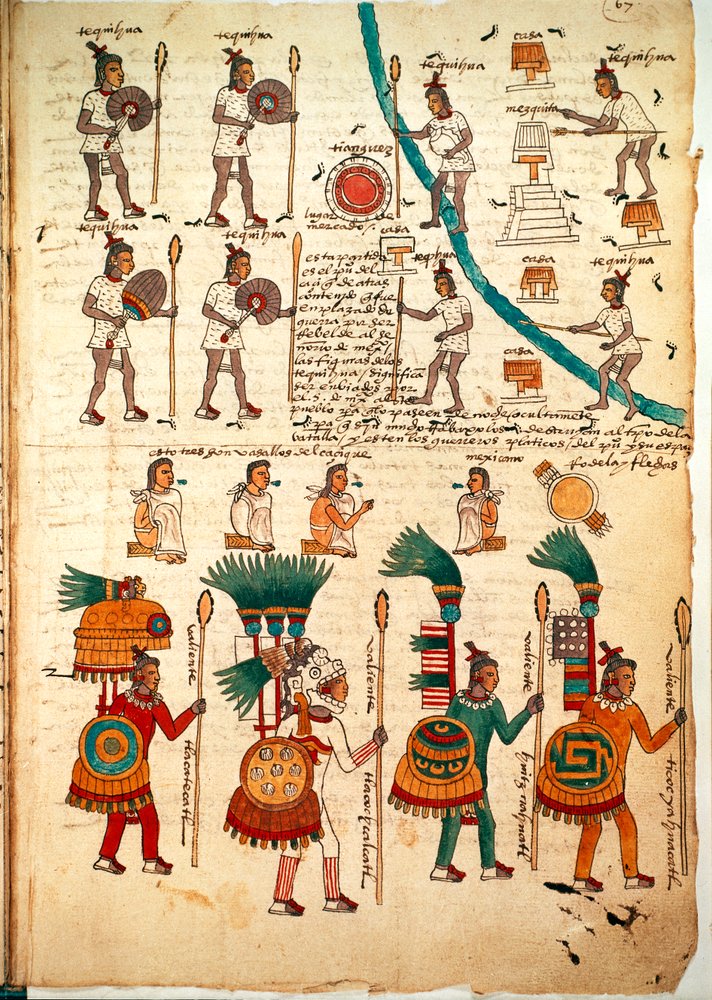 67
tequihua
tequihua
tequihua
casa
tequihua
mezquita
tianguez
lugar de
mercado /.
casa
tequihua
tequihua
tequihua
casa
tequihua
casa
esta partida
es el pu del
de atras
contenido q fue
enplazado de
guerra por ser
rebelde al se
ñorio de
las figuras de los
tequihua / significa
ser enbiados por
el S. de mexᵒ al
pueblo pᵃ q lo paseen de noche ocultamẽte
batalla / y esten los guerreros platicos / del
estos tres son vasallos del cacique
mexicano
rodela y flechas
valiente
tlacatecatl
valiente
tlacochcalcatl
valiente
huitznahuatl
valiente
ticocyahuacatl